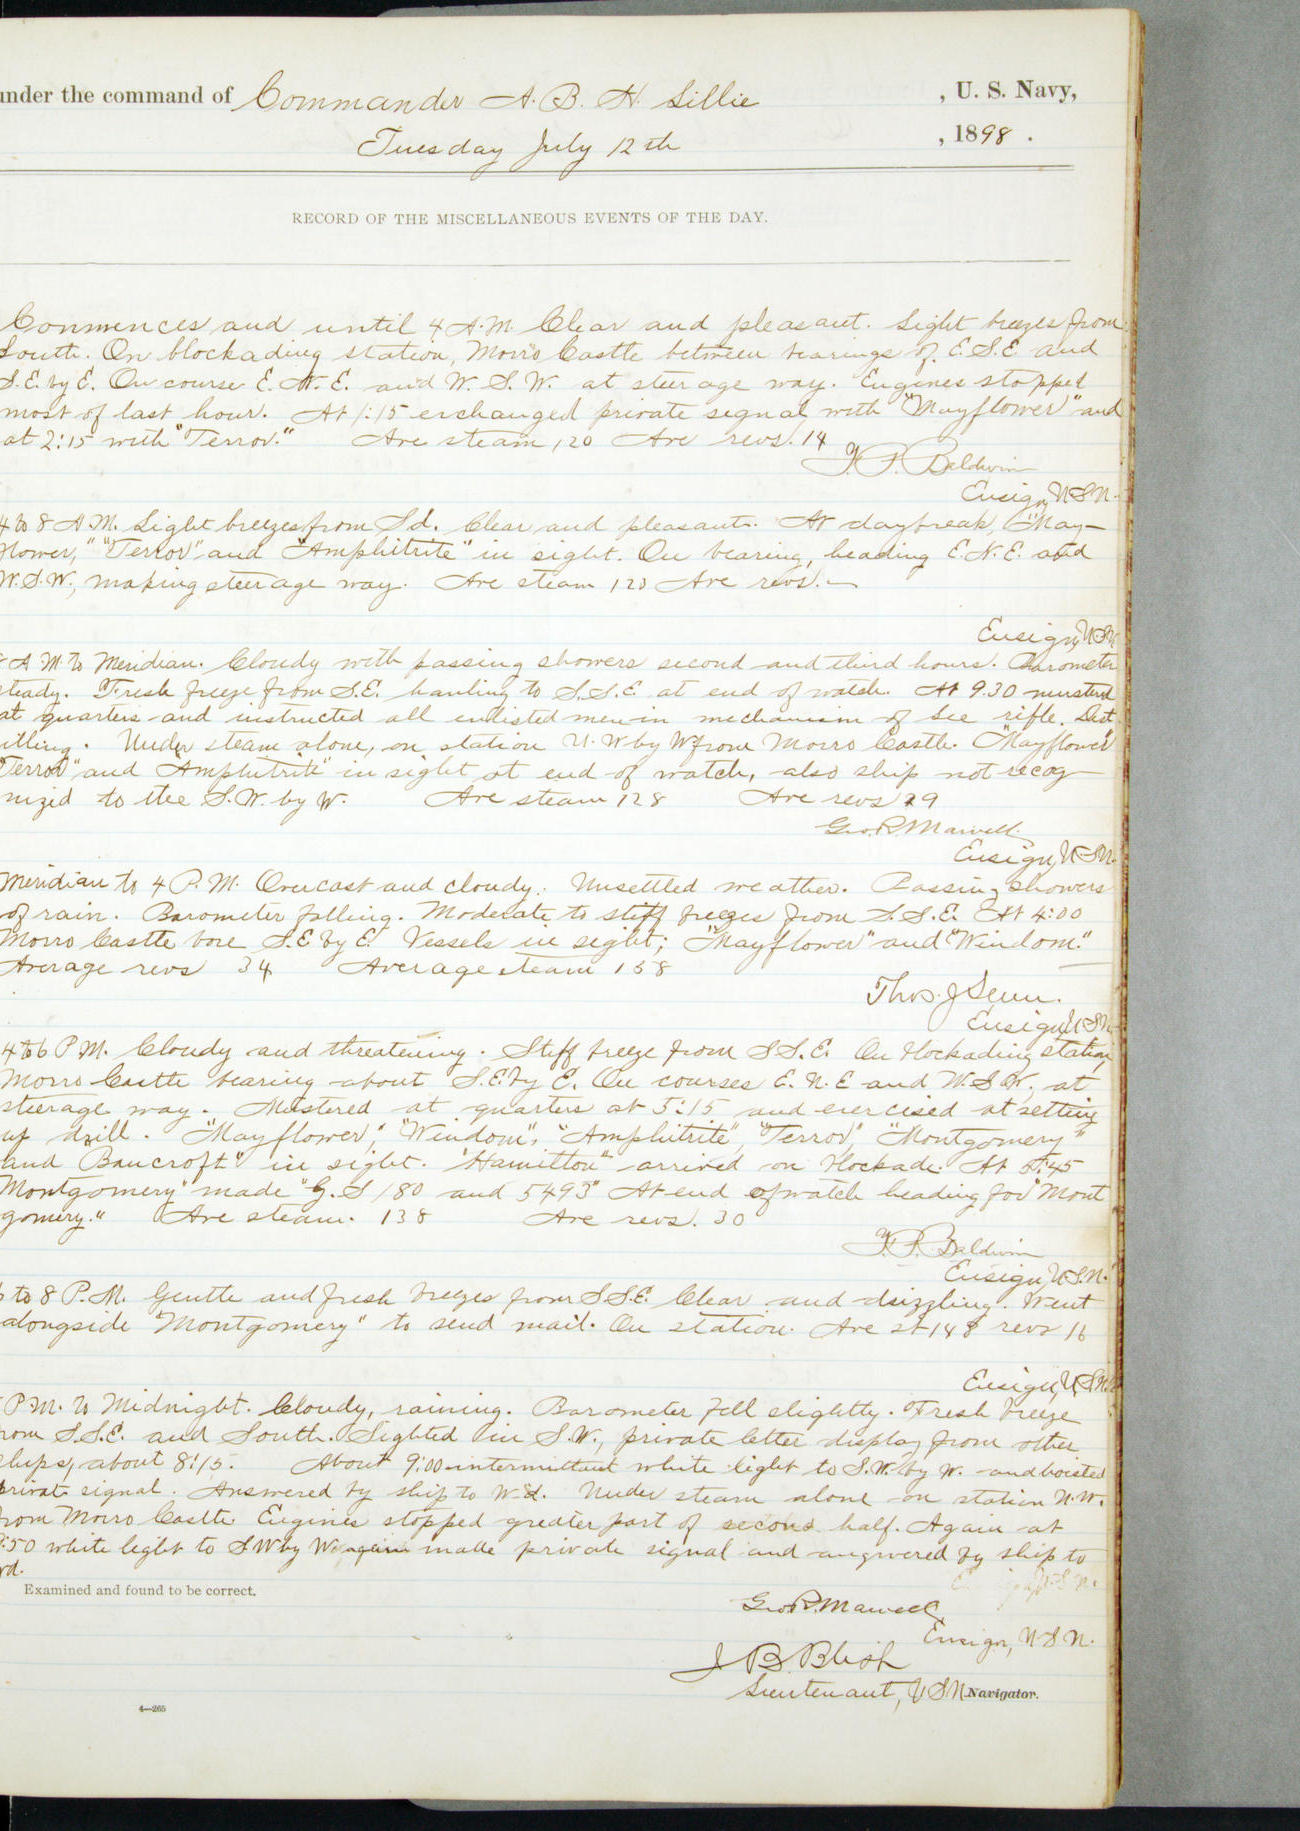 under the command of Commander A. B. H. Lillie , U. S. Navy,
Tuesday July 12th , 1898 .
RECORD OF THE MISCELLANEOUS EVENTS OF THE DAY.
Commences and until 4 A.M. Clear and pleasant. Light breezes from
South. On blockading station, Morro Castle between bearings of E.S.E and
S.E. by E. On course E.N.E. and W.S.W. at steerage way. Engines stopped
most of last hour. At 1:15 exchanged private signal with "Mayflower" and
at 2:15 with "Terror." Ave steam 120 Ave revs. 14
F. P. Baldwin
Ensign, U.S.N.
4 to 8 A.M. Light breezes from Sd. Clear and pleasant. At daybreak, "May-
flower," "Terror" and "Amphitrite" in sight. On bearing, heading E.N.E. and
W.S.W., making steerage way. Ave steam 120 Ave revs. —
Ensign, U.S.N.
8 A M to Meridian. Cloudy with passing showers second and third hours. Barometer
steady. Fresh breeze from S.E. hauling to S.S.E at end of watch. At 9.30 mustered
at quarters and instructed all enlisted men in mechanism of Lee rifle. Dist
illing. Under steam alone, on station N.W by W from Morro Castle. "Mayflower"
"Terror" and "Amphitrite" in sight at end of watch, also ship not recog
nized to the S.W. by W. Ave steam 128 Ave revs 29
Geo. R. Marvell
Ensign, U.S.N.
Meridian to 4 P.M. Overcast and cloudy. Unsettled weather. Passing showers
of rain. Barometer falling. Moderate to stiff breezes from S.S.E. At 4:00
Morro Castle bore S.E by E. Vessels in sight; "Mayflower" and "Windom."
Average revs 34 Average steam 138
Thos. J Senn.
Ensign, U.S.N.
4 to 6 P M. Cloudy and threatening. Stiff breeze from S S.E. On blockading station,
Morro Castle bearing about S.E. by E. On courses E. N. E and W.S.W. at
steerage way. Mustered at quarters at 5:15 and exercised at setting
up drill. "Mayflower", "Windom", "Amphitrite", "Terror", "Montgomery"
and Bancroft" in sight. "Hamilton" arrived on blockade. At 5:45
Montgomery" made "G. S 180 and 5493" At end of watch heading for "Mont
gomery." Ave steam. 138 Ave revs. 30
F. P. Baldwin
Ensign, U.S.N.
6 to 8 P.M. Gentle and fresh breezes from S S.E. Clear and drizzling. Went
alongside "Montgomery" to send mail. On station. Ave st 148 revs 16
Ensign, U.S.N.
8 P.M. to Midnight. Cloudy, raining. Barometer fell slightly. Fresh breeze
from S.S.E. and South. Sighted in S.W., private letter display from other
ships, about 8:15. About 9:00 intermittent white light to S.W. by W. and hoisted
private signal. Answered by ship to Wd. Under steam alone on station N.W.
from Morro Castle. Engines stopped greater part of second half. Again at
:50 white light to SW by W again made private signal and answered by ship to
wd.
Ensign, U.S.N.
Examined and found to be correct.
Geo. R. Marvell
Ensign, U.S.N.
J B. Blish
Lieutenant, U S N. Navigator.
4—265